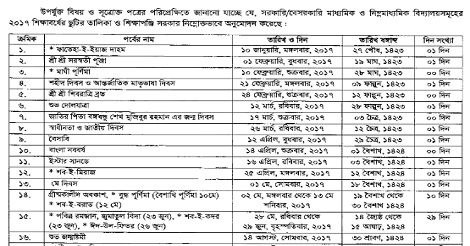 উপর্যুক্ত বিষয় ও সূত্রোক্ত পত্রের পরিপ্রেক্ষিতে জানানো যাচ্ছে যে, সরকারি/বেসরকারি মাধ্যমিক ও নিম্নমাধ্যমিক বিদ্যালয়সমূহের
২০১৭ শিক্ষাবর্ষের ছুটির তালিকা ও শিক্ষাপঞ্জি সরকার নিম্নোক্তভাবে অনুমোদন করেছে :
ক্রমিক পর্বের নাম তারিখ ও দিন তারিখ বঙ্গাব্দ দিন সংখ্যা
১. * ফাতেহা-ই-ইয়াজ দাহম ১০ জানুয়ারি, মঙ্গলবার, ২০১৭ ২৭ পৌষ, ১৪২৩ ০১ দিন
২. শ্রী শ্রী সরস্বতী পূজা ০১ ফেব্রুয়ারি, বুধবার, ২০১৭ ১৯ মাঘ, ১৪২৩ ০১ দিন
৩. * মাঘী পূর্ণিমা ১০ ফেব্রুয়ারি, শুক্রবার, ২০১৭ ২৮ মাঘ, ১৪২৩ ০০ দিন
৪. শহীদ দিবস ও আন্তর্জাতিক মাতৃভাষা দিবস ২১ ফেব্রুয়ারি, মঙ্গলবার, ২০১৭ ০৯ ফাল্গুন, ১৪২৩ ০১ দিন
৫. শ্রী শ্রী শিবরাত্রি ব্রত ২৪ ফেব্রুয়ারি, শুক্রবার, ২০১৭ ১২ ফাল্গুন, ১৪২৩ ০০ দিন
৬. শুভ দোলযাত্রা ১২ মার্চ, রবিবার, ২০১৭ ২৮ ফাল্গুন, ১৪২৩ ০১ দিন
৭. জাতির পিতা বঙ্গবন্ধু শেখ মুজিবুর রহমান এর জন্ম দিবস ১৭ মার্চ, শুক্রবার, ২০১৭ ০৩ চৈত্র, ১৪২৩ ০০ দিন
৮. স্বাধীনতা ও জাতীয় দিবস ২৬ মার্চ, রবিবার, ২০১৭ ১২ চৈত্র, ১৪২৩ ০১ দিন
৯. বৈসাবি ১২ এপ্রিল, বুধবার, ২০১৭ ২৯ চৈত্র, ১৪২৩ ০১ দিন
১০. বাংলা নববর্ষ ১৪ এপ্রিল, শুক্রবার, ২০১৭ ০১ বৈশাখ, ১৪২৪ ০০ দিন
১১. ইস্টার সানডে ১৬ এপ্রিল, রবিবার, ২০১৭ ০৩ বৈশাখ, ১৪২৪ ০১ দিন
১২. * শব-ই-মিরাজ ২৫ এপ্রিল, মঙ্গলবার, ২০১৭ ১২ বৈশাখ, ১৪২৪ ০১ দিন
১৩. মে দিবস ০১ মে, সোমবার, ২০১৭ ১৮ বৈশাখ, ১৪২৪ ০১ দিন
১৪. গ্রীষ্মকালীন অবকাশ, * বুদ্ধ পূর্ণিমা (বৈশাখি পূর্ণিমা ১০মে) ০২ মে, মঙ্গলবার থেকে ১৩ মে ১৯ বৈশাখ থেকে ১০ দিন
* শব-ই-বরাত (১২ মে) শনিবার, ২০১৭ ৩০ বৈশাখ, ১৪২৪
১৫. * পবিত্র রমজান, জুমাতুল বিদা (২৩ জুন), * শব-ই-কদর ২৮ মে, রবিবার থেকে ১৪ জ্যৈষ্ঠ থেকে ২৯ দিন
(২৩ জুন), * ঈদ-উল-ফিতর (২৬ জুন) ২৯ জুন, বৃহস্পতিবার, ২০১৭ ১৫ আষাঢ়, ১৪২৪
১৬. শুভ জন্মাষ্টমী ১৪ আগস্ট, সোমবার, ২০১৭ ৩০ শ্রাবণ, ১৪২৪ ০১ দিন